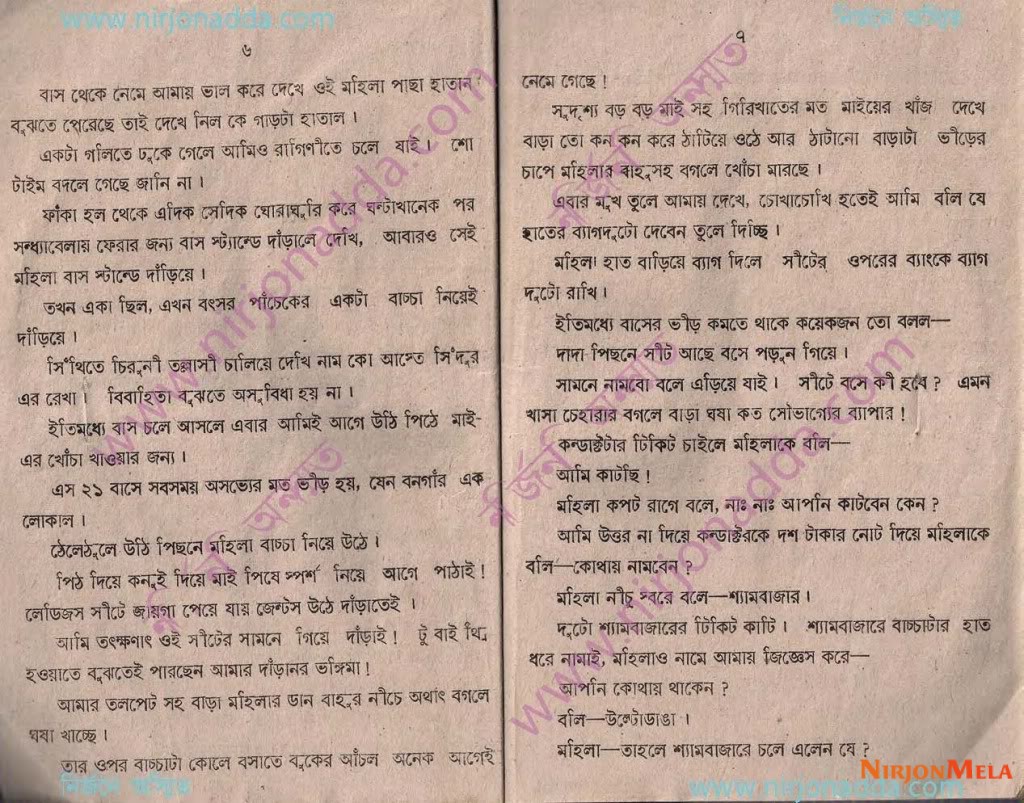 www.nirjonadda.com
৬
বাস থেকে নেমে আমায় ভাল করে দেখে ওই মহিলা পাছা হাতান।
বুঝতে পেরেছে তাই দেখে নিল কে গাড়টা হাতাল।
একটা গলিতে ঢুকে গেলে আমিও রাগিণীতে চলে যাই। শো
টাইম বদলে গেছে জানি না।
ফাঁকা হল থেকে এদিক সেদিক ঘোরাঘুরি করে ঘন্টাখানেক পর
সন্ধ্যাবেলায় ফেরার জন্য বাস স্ট্যান্ডে দাঁড়ালে দেখি, আবারও সেই
মহিলা বাস স্টান্ডে দাঁড়িয়ে।
তখন একা ছিল, এখন বৎসর পাঁচেকের একটা বাচ্চা নিয়েই
দাঁড়িয়ে।
সিঁথিতে চিরুনী তল্লাসী চালিয়ে দেখি নাম কো আস্তে সিঁদুর
এর রেখা। বিবাহিতা বুঝতে অসুবিধা হয় না।
ইতিমধ্যে বাস চলে আসলে এবার আমিই আগে উঠি পিঠে মাই-
এর খোঁচা খাওয়ার জন্য।
এস ২১ বাসে সবসময় অসভ্যের মত ভীড় হয়, যেন বনগাঁর এক
লোকাল।
ঠেলেঠুলে উঠি পিছনে মহিলা বাচ্চা নিয়ে উঠে।
পিঠ দিয়ে কনুই দিয়ে মাই পিষে স্পর্শ নিয়ে আগে পাঠাই!
লেডিজস সীটে জায়গা পেয়ে যায় জেন্টস উঠে দাঁড়াতেই।
আমি তৎক্ষণাৎ ওই সীটের সামনে গিয়ে দাঁড়াই! টু বাই থ্রি
হওয়াতে বুঝতেই পারছেন আমার দাঁড়ানর ভঙ্গিমা!
আমার তলপেট সহ বাড়া মহিলার ডান বাহুর নীচে অর্থাৎ বগলে
ঘষা খাচ্ছে।
তার ওপর বাচ্চাটা কোলে বসাতে বুকের আঁচল অনেক আগেই
৭
নেমে গেছে!
সুদৃশ্য বড় বড় মাই সহ গিরিখাতের মত মাইয়ের খাঁজ দেখে
বাড়া তো কন কন করে ঠাটিয়ে ওঠে আর ঠাটানো বাড়াটা ভীড়ের
চাপে মহিলার বাহুসহ বগলে খোঁচা মারছে।
এবার মুখ তুলে আমায় দেখে, চোখাচোখি হতেই আমি বলি যে
হাতের ব্যাগদুটো দেবেন তুলে দিচ্ছি।
মহিলা হাত বাড়িয়ে ব্যাগ দিলে সীটের ওপরের ব্যাংকে ব্যাগ
দুটো রাখি।
ইতিমধ্যে বাসের ভীড় কমতে থাকে কয়েকজন তো বলল—
দাদা পিছনে সীট আছে বসে পড়ুন গিয়ে।
সামনে নামবো বলে এড়িয়ে যাই। সীটে বসে কী হবে? এমন
খাসা চেহারার বগলে বাড়া ঘষা কত সৌভাগ্যের ব্যাপার!
কন্ডাক্টটার টিকিট চাইলে মহিলাকে বলি—
আমি কাটছি!
মহিলা কপট রাগে বলে, নাঃ নাঃ আপনি কাটবেন কেন?
আমি উত্তর না দিয়ে কন্ডাক্টরকে দশ টাকার নোট দিয়ে মহিলাকে
বলি—কোথায় নামবেন?
মহিলা নীচু স্বরে বলে—শ্যামবাজার।
দুটো শ্যামবাজারের টিকিট কাটি। শ্যামবাজারে বাচ্চাটার হাত
ধরে নামাই, মহিলাও নামে আমায় জিজ্ঞেস করে—
আপনি কোথায় থাকেন?
বলি—উল্টোডাঙা।
মহিলা—তাহলে শ্যামবাজারে চলে এলেন যে?
NIRJONMELA
www.nirjonadda.com